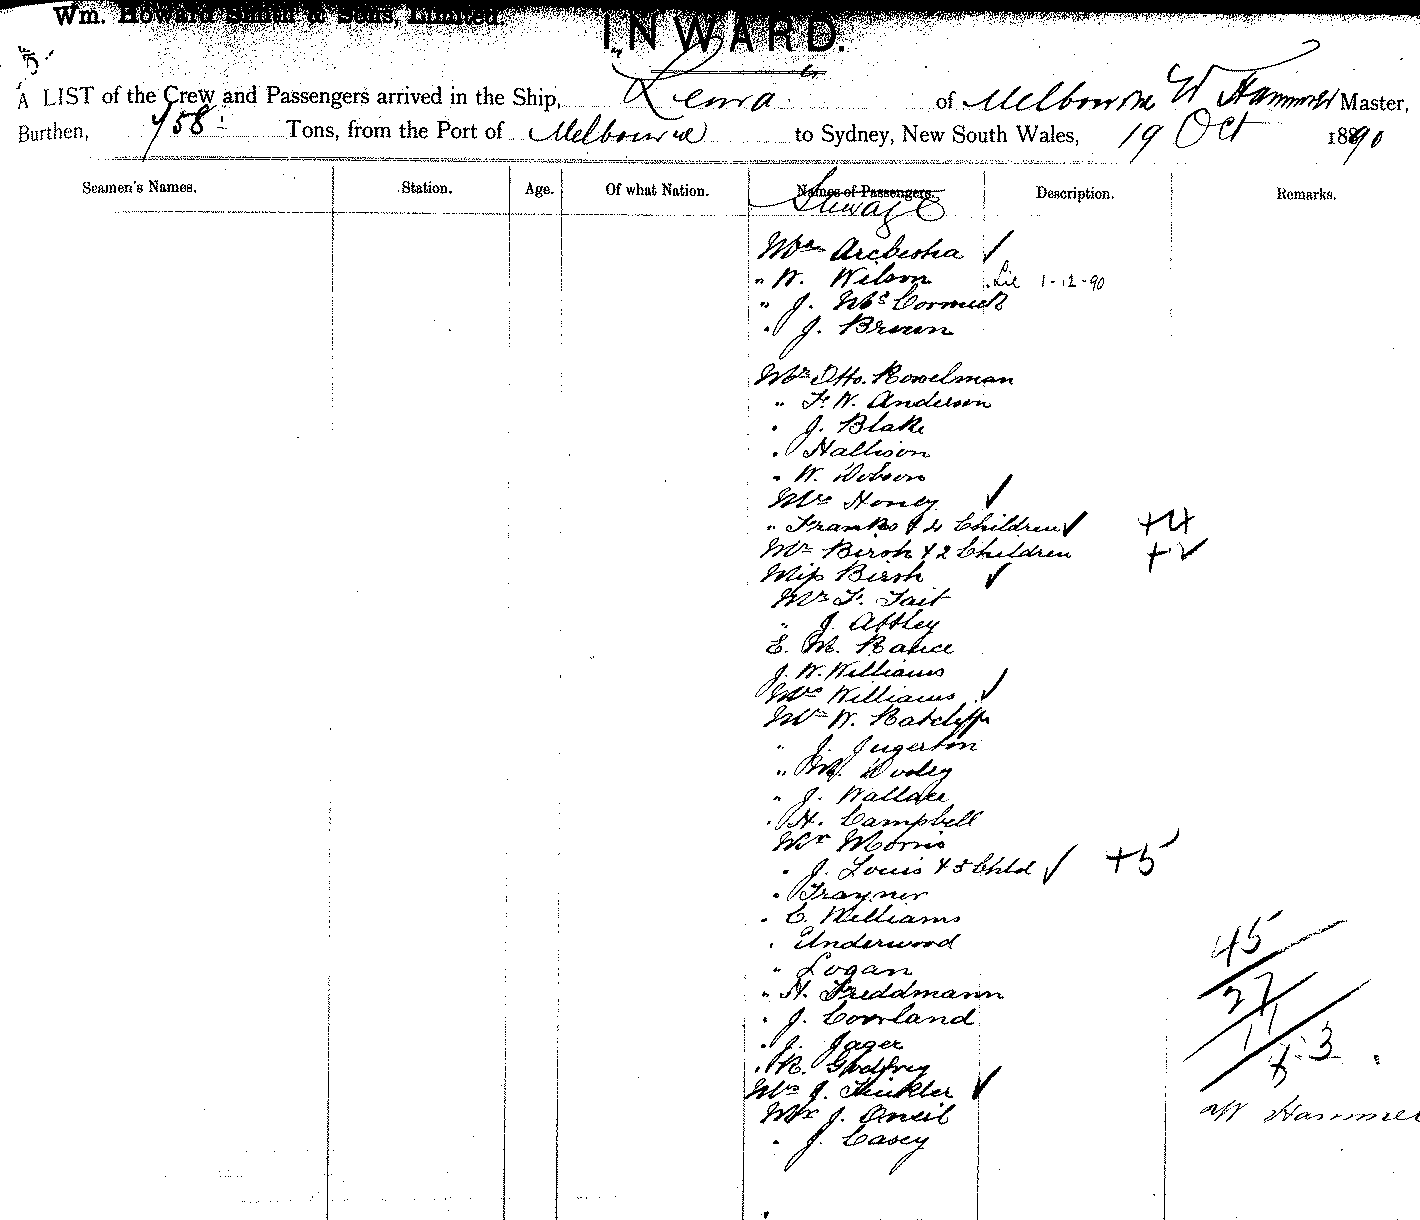 Wm. Howard Smith & Sons, Limited.
INWARD.
A LIST of the Crew and Passengers arrived in the Ship, of Melbourne W Hammer Master,
Burthen, 758 Tons, from the Port of Melbourne to Sydney, New South Wales, 19 Oct 1890
Seamen's Names. Station. Age. Of what Nation. Names of Passengers. Description. Remarks.
Steerage
Mrs ✓
" W. Wilson 1-12-90
" J. McCormick
" J. Brown
Mr Otto
" F. W. Anderson
" J. Blake
" Hallison
" W. Dobson
Mrs Honey ✓
" Franks & 4 Children ✓ +4
Mr Birsh & 2 Children +2 ✓
Miss Birsh ✓
Mr F. Tait
" J.
E. M. Rance
J. W. Williams
Mrs Williams ✓
Mr W. Ratcliffe
" J. Jugerton
" M. Dooley
" J. Wallace
" H. Campbell
Mr Morris
" J. Louis & 5 Child ✓ +5
" Traynor
" C. Williams
" Underwood
" Logan
" H. Freddmann
" J. Courland
" J. Jager
" R. Godfrey
Mrs J. Hinkler ✓
Mr J. Oneil
" J. Casey
45
27
11
83
W Hammer